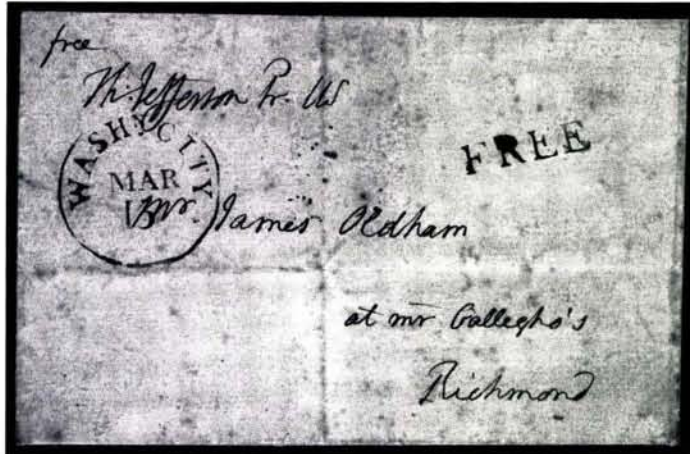 free
Th: Jefferson Pr. US
FREE
WASHN. CITY
MAR
mr. James Oldham
at mr Gallegho's
Richmond